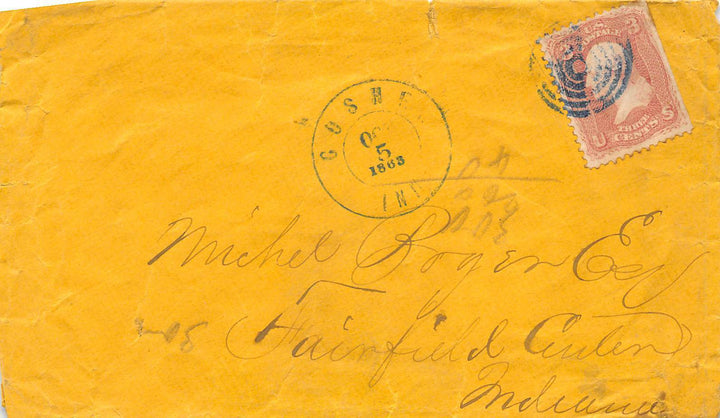 GOSHEN
OC
5
1863
IND
U.S. POSTAGE
3 3
U S
THREE CENTS
Michel Boyer Esq
Fairfield Center
Indiana